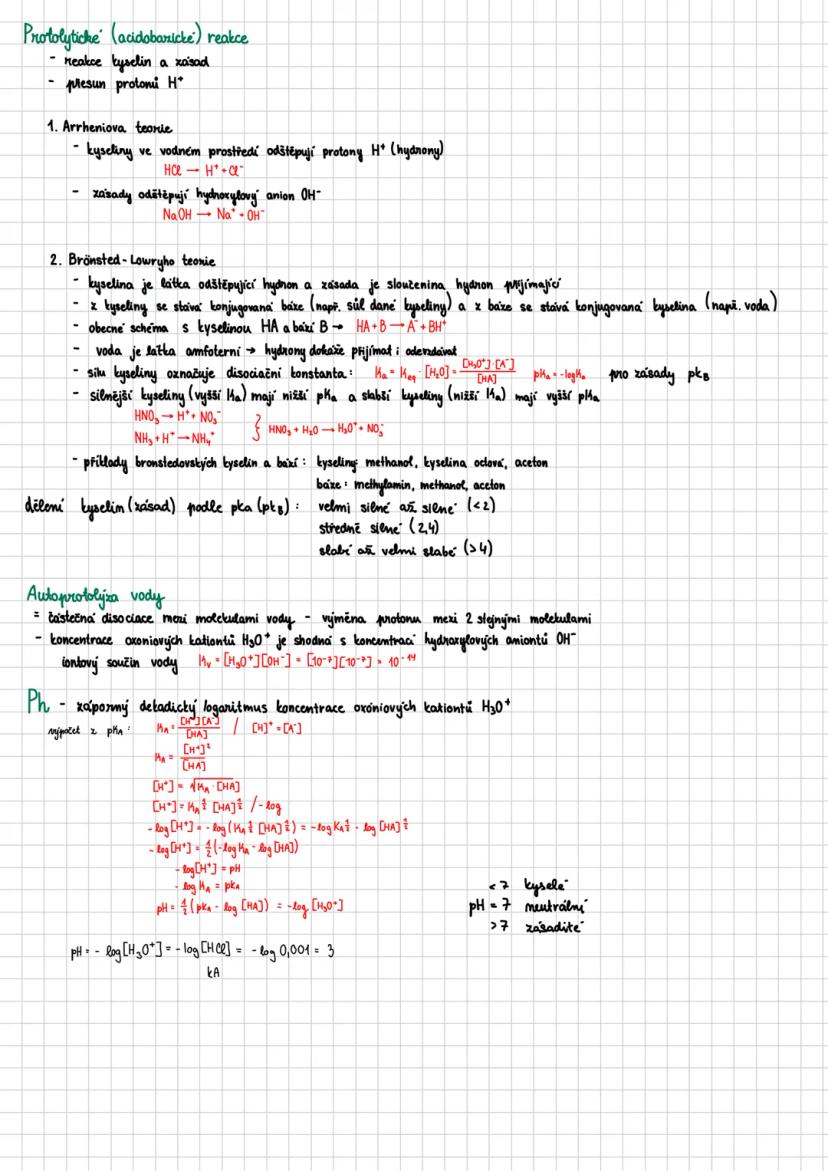 Protolytické (acidobazické) reakce
- reakce kyselin a zásad
- přesun protonů H⁺
1. Arrheniova teorie
- kyseliny ve vodném prostředí odštěpují protony H⁺ (hydrony)
HCl → H⁺ + Cl⁻
- zásady odštěpují hydroxylový anion OH⁻
NaOH → Na⁺ + OH⁻
2. Brönsted-Lowryho teorie
- kyselina je látka odštěpující hydron a zásada je sloučenina hydron přijímající
- z kyseliny se stává konjugovaná báze (např. sůl dané kyseliny) a z báze se stává konjugovaná kyselina (např. voda)
- obecné schéma s kyselinou HA a bází B → HA + B → A⁻ + BH⁺
- voda je látka amfoterní → hydrony dokáže přijímat i odevzdávat
- sílu kyseliny označuje disociační konstanta: Kₐ = Keq · [H₂O] = [H₃O⁺]·[A⁻] / [HA] pKₐ = -logKₐ pro zásady pkB
- silnější kyseliny (vyšší Kₐ) mají nižší pKₐ a slabší kyseliny (nižší Kₐ) mají vyšší pKₐ
HNO₃ → H⁺ + NO₃⁻
NH₃ + H⁺ → NH₄⁺ } HNO₃ + H₂O → H₃O⁺ + NO₃⁻
- příklady bronstedovských kyselin a bází: kyseliny: methanol, kyselina octová, aceton
báze: methylamin, methanol, aceton
dělení kyselin (zásad) podle pka (pkB): velmi silné až silné (<2)
středně silné (2,4)
slabé až velmi slabé (>4)
Autoprotolýza vody
= částečná disociace mezi molekulami vody - výměna protonu mezi 2 stejnými molekulami
- koncentrace oxoniových kationtů H₃O⁺ je shodná s koncentrací hydroxylových aniontů OH⁻
iontový součin vody Kv = [H₃O⁺][OH⁻] = [10⁻⁷][10⁻⁷] = 10⁻¹⁴
Ph - záporný dekadický logaritmus koncentrace oxóniových kationtů H₃O⁺
výpočet z pKA: KA = [H⁺][A⁻] / [HA] / [H]⁺ = [A⁻]
KA = [H⁺]² / [HA]
[H⁺] = √KA · [HA]
[H⁺] = KA½ [HA]½ /-log
-log[H⁺] = -log(KA½ [HA]½) = -log KA½ - log [HA]½
-log[H⁺] = ½(-log KA - log[HA])
-log[H⁺] = pH
-log KA = pkA
pH = ½(pkA - log [HA]) = -log [H₃O⁺]
<7 kyselé
pH = 7 neutrální
>7 zásadité
pH = - log[H₃O⁺] = -log[HCl] = -log 0,001 = 3
kA